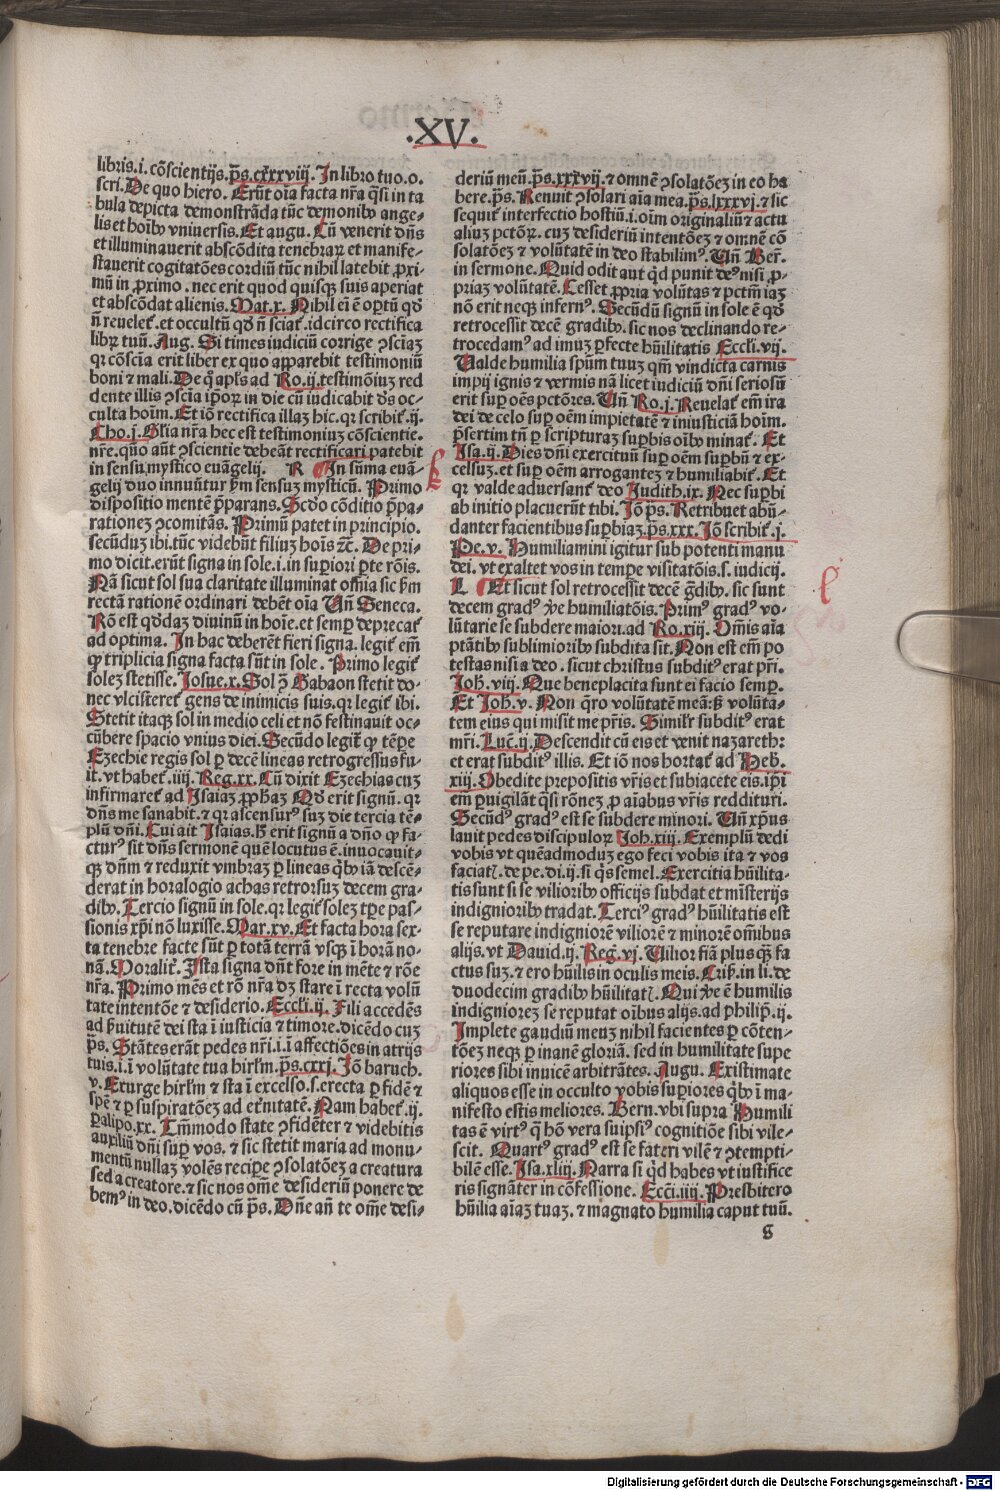 .XV.
libris.i.cōsciētijs.p̄s.cxxxviij. In libro tuo.o.
scri. De quo hiero. Erūt oīa facta nr̄a q̄si in ta
bula depicta demonstrāda tūc demonibꝰ ange-
lis et hoībꝰ vniuersis. Et augu. Cū venerit dn̄s
et illuminauerit abscōdita tenebraꝝ et manife-
stauerit cogitatōes cordiū tūc nihil latebit ꝓxi-
mū in ꝓximo. nec erit quod quisqꝫ suis aperiat
et abscōdat alienis. Mat.x. Nihil eī ē optū qd̄
n̄ reueletᷣ. et occultū qd̄ n̄ sciatᷣ. idcirco rectifica
libꝝ tuū. Aug. Si times iudiciū corrige ꝯsciaꝫ
qꝛ cōscia erit liber ex quo apparebit testimoniū
boni et mali. De q̄ apl̄s ad Ro.ij. testimōiuꝫ red
dente illis ꝯscia ip̄oꝝ in die cū iudicabit dꝰs oc-
culta hoīm. Et iō rectifica illaꝫ hic. qꝛ scribitᷣ.ij.
Cho.j. Glīa nr̄a hec est testimoniuꝫ cōscientie.
nr̄e. quō aūt ꝯscientie debeāt rectificari patebit
in sensu mystico euāgelij. R In sūma euā-
gelij duo innuūtur ẜm sensuꝫ mysticū. Primo
dispositio mentē p̄parans. Scdo cōditio p̄pa-
rationeꝫ ꝯcomitās. Primū patet in principio.
secūduꝫ ibi. tūc videbūt filiuꝫ hoīs ꝛc. De pri-
mo dicit. erūt signa in sole.i.in suꝑiori ꝑte rōis.
Nā sicut sol sua claritate illuminat oīa sic ẜm
rectā rationē ordinari debēt oīa Vn̄ Seneca.
Rō est qd̄daꝫ diuinū in hoīe. et semꝑ deprecatᷣ
ad optima. In hac deberēt fieri signa. legitᷣ em̄
ꝙ triplicia signa facta sūt in sole. Primo legitᷣ
soleꝫ stetisse. Josue.x. Sol ꝯ̄ Gabaon stetit do-
nec vlcisceretᷣ gens de inimicis suis. qꝛ legitᷣ ibi.
Stetit itaqꝫ sol in medio celi et nō festinauit oc-
cūbere spacio vnius diei. Secūdo legitᷣ ꝙ tēpe
Ezechie regis sol ꝑ decē lineas retrogressus fu-
it. vt habetᷣ. iiij. Reg.xx. Cū dixit Ezechias cuꝫ
infirmaretᷣ ad Isaiaꝫ ꝓphꝫ Qd̄ erit signū. qꝛ
dn̄s me sanabit. ⁊ qꝛ ascensurꝰ suꝫ die tercia tē-
plū dn̄i. Cui ait Isaias. h̄ erit signū a dn̄o ꝙ fa-
cturꝰ sit dn̄s sermonē quē locutus ē. inuocauit-
qꝫ dn̄m ⁊ reduxit vmbraꝫ ꝑ lineas q̄bꝰ iā descē-
derat in horalogio achas retrorsuꝫ decem gra-
dibꝰ. Tercio signū in sole. qꝛ legitᷣ soleꝫ tp̄e pas-
sionis xp̄i nō luxisse. Mar.xv. Et facta hora sex-
ta tenebre facte sūt ꝑ totā terrā vsqꝫ ī horā no-
nā. Moralitᷣ. Ista signa dn̄t fore in mēte ⁊ rōe
nr̄a. Primo mēs et rō nr̄a dꝫ stare ī recta volū
tate intentōe ⁊ desiderio. Eccli.ij. Fili accedēs
ad ẜuitutē dei sta ī iusticia ⁊ timore. dicēdo cuꝫ
p̄s. Stātes erāt pedes nr̄i.i.ī affectiōes in atrijs
tuis.i.ī volūtate tua hirlm̄. p̄s.cxxj. Iō baruch.
v. Exurge hirlm̄ ⁊ sta ī excelso.s.erecta ꝑ fidē ⁊
spē ⁊ ꝑ suspiratōeꝫ ad etᷣnitatē. Nam habetᷣ.ij.
ꝑalipo.xx. Tm̄modo state ꝯfidēter ⁊ videbitis
auxiliū dn̄i suꝑ vos. ⁊ sic stetit maria ad monu-
mentū nullaꝫ volēs reciꝑe ꝯsolatōeꝫ a creatura
sed a creatore. ⁊ sic nos om̄e desideriū ponere de
bemꝰ in deo. dicēdo cū p̄s. Dn̄e an̄ te om̄e desi-
deriū meū. p̄s.xxxvij. ⁊ omnē ꝯsolatōeꝫ in eo ha
bere. p̄s. Renuit ꝯsolari aīa mea. p̄s.lxxxvj. ⁊ sic
sequitᷣ interfectio hostiū.i.oīm originaliū ⁊ actu
aliuꝫ pctōꝝ. cuꝫ desideriū intentōeꝫ ⁊ omnē cō
solatōeꝫ ⁊ volūtatē in deo stabilimꝰ. Vn̄ Ber̄.
in sermone. Quid odit aut qd̄ punit deꝰ nisi ꝓ-
priaꝫ volūtatē. Cesset ꝓpria volūtas ⁊ pctm̄ iaꝫ
nō erit neqꝫ infernꝰ. Secūdū signū in sole ē qd̄
retrocessit decē gradibꝰ. sic nos declinando re-
trocedamꝰ ad imuꝫ ꝑfecte hūilitatis Eccli.vij.
Valde humilia spūm tuuꝫ qm̄ vindicta carnis
impij ignis ⁊ vermis nā licet iudiciū dn̄i seriosū
erit suꝑ oēs pctōres. Vn̄ Ro.j. Reuelatᷣ em̄ ira
dei de celo suꝑ oēm impietatē ⁊ iniusticiā hoīm.
p̄sertim tn̄ ꝑ scripturaꝫ suꝑbis oībꝰ minatᷣ. Et
Isa.ij. Dies dn̄i exercituū suꝑ oēm suꝑbū ⁊ ex-
celsuꝫ. et suꝑ oēm arroganteꝫ ⁊ humiliabitᷣ. Et
qꝛ valde aduersantᷣ deo Judith.ix. Nec suꝑbi
ab initio placuerūt tibi. Iō p̄s. Retribuet abū-
danter facientibus suꝑbiaꝫ. p̄s.xxx. Iō scribitᷣ.j.
Pe.v. Humiliamini igitur sub potenti manu
dei. vt exaltet vos in tempe visitatōis.s.iudicij.
L Et sicut sol retrocessit decē gᷓdibꝰ. sic sunt
decem gradꝰ ꝟe humiliatōis. Primꝰ gradꝰ vo-
lūtarie se subdere maiori. ad Ro.xiij. Om̄is aīa
ptātibꝰ sublimioribꝰ subdita sit. Non est em̄ po
testas nisi a deo. sicut christus subditꝰ erat pr̄i.
Joh̄.viij. Que beneplacita sunt ei facio semꝑ.
Et Joh̄.v. Non q̄ro volūtatē meā: sꝫ volūta-
tem eius qui misit me pr̄is. Similr̄ subditꝰ erat
mr̄i. Luc̄.ij. Descendit cū eis et venit nazareth:
et erat subditꝰ illis. Et iō nos hortatᷣ ad Heb̄.
xiij. Obedite prepositis vr̄is et subiacete eis. ip̄i
em̄ ꝑuigilāt q̄si rōneꝫ ꝓ aīabus vr̄is reddituri.
Secūdꝰ gradꝰ est se subdere minori. Vn̄ xp̄us
lauit pedes discipuloꝝ Joh.xiij. Exemplū dedi
vobis vt quēadmoduꝫ ego feci vobis ita ⁊ vos
faciatꝭ. de pe. di.ij. si q̄s semel. Exercitia hūilita-
tis sunt si se vilioribꝰ officijs subdat et mīsterijs
indignioribꝰ tradat. Terciꝰ gradꝰ hūilitatis est
se reputare indigniorē viliorē ⁊ minorē om̄ibus
alijs. vt Dauid.ij. Reg.vj. Vilior fiā plusqꝫ̄ fa
ctus suꝫ. ⁊ ero hūilis in oculis meis. Crisꝰ. in li. de
duodecim gradibꝰ hūilitatꝭ. Qui ꝟe ē humilis
indignioreꝫ se reputat oībus alijs. ad philip̄.ij.
Implete gaudiū meuꝫ nihil facientes ꝑ cōten-
tōeꝫ neqꝫ ꝑ inanē gloriā. sed in humilitate supe
riores sibi inuicē arbitrātes. Augu. Existimate
aliquos esse in occulto vobis suꝑiores q̄bꝰ ī ma-
nifesto estis meliores. Bern. vbi supra Humili
tas ē virtꝰ q̄ hō vera suipsiꝰ cognitiōe sibi vile-
scit. Quartꝰ gradꝰ est se fateri vilē ⁊ ꝯtempti-
bilē esse. Isa.xliij. Narra si qd̄ habes vt iustifice
ris signāter in cōfessione. Eccī.iiij. Presbitero
hūilia aīaꝫ tuaꝫ. ⁊ magnato humilia caput tuū.
s
Digitalisierung gefördert durch die Deutsche Forschungsgemeinschaft - DFG